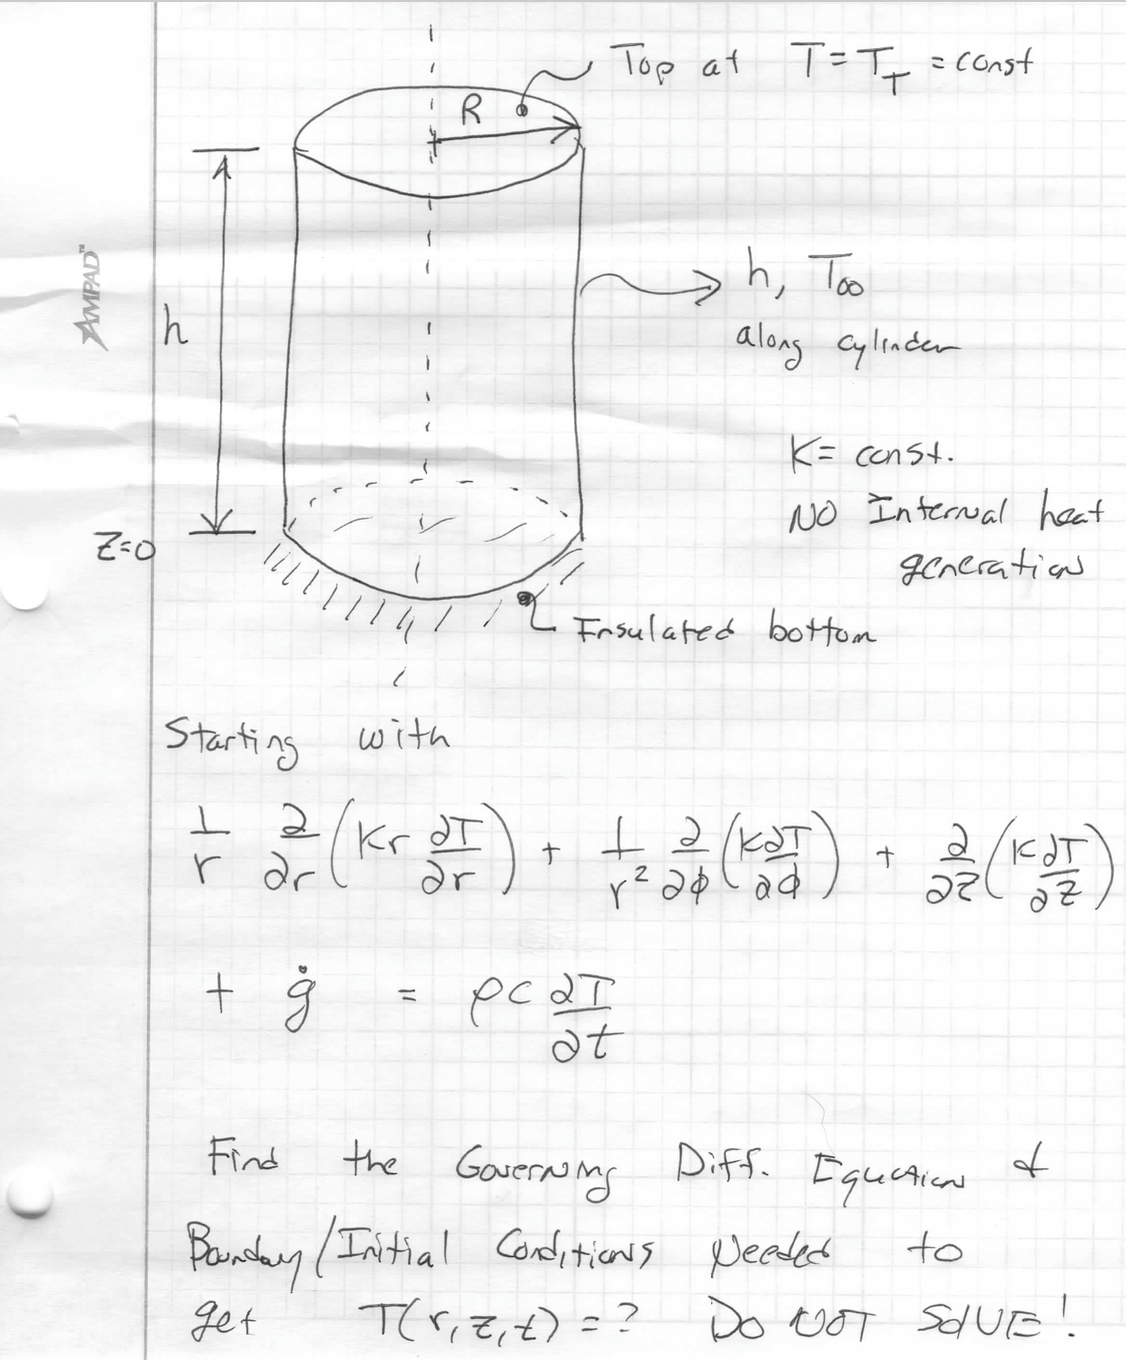 Top at T = T_T = const
R
h, T∞
along cylinder
AMPAD™
h
K = const.
NO Internal heat
generation
z=0
Insulated bottom
Starting with
1/r ∂/∂r (Kr ∂T/∂r) + 1/r² ∂/∂φ (K∂T/∂φ) + ∂/∂z (K∂T/∂z)
+ ġ = ρc ∂T/∂t
Find the Governing Diff. Equation &
Boundary/Initial Conditions Needed to
get T(r,z,t) = ? DO NOT SOLVE!